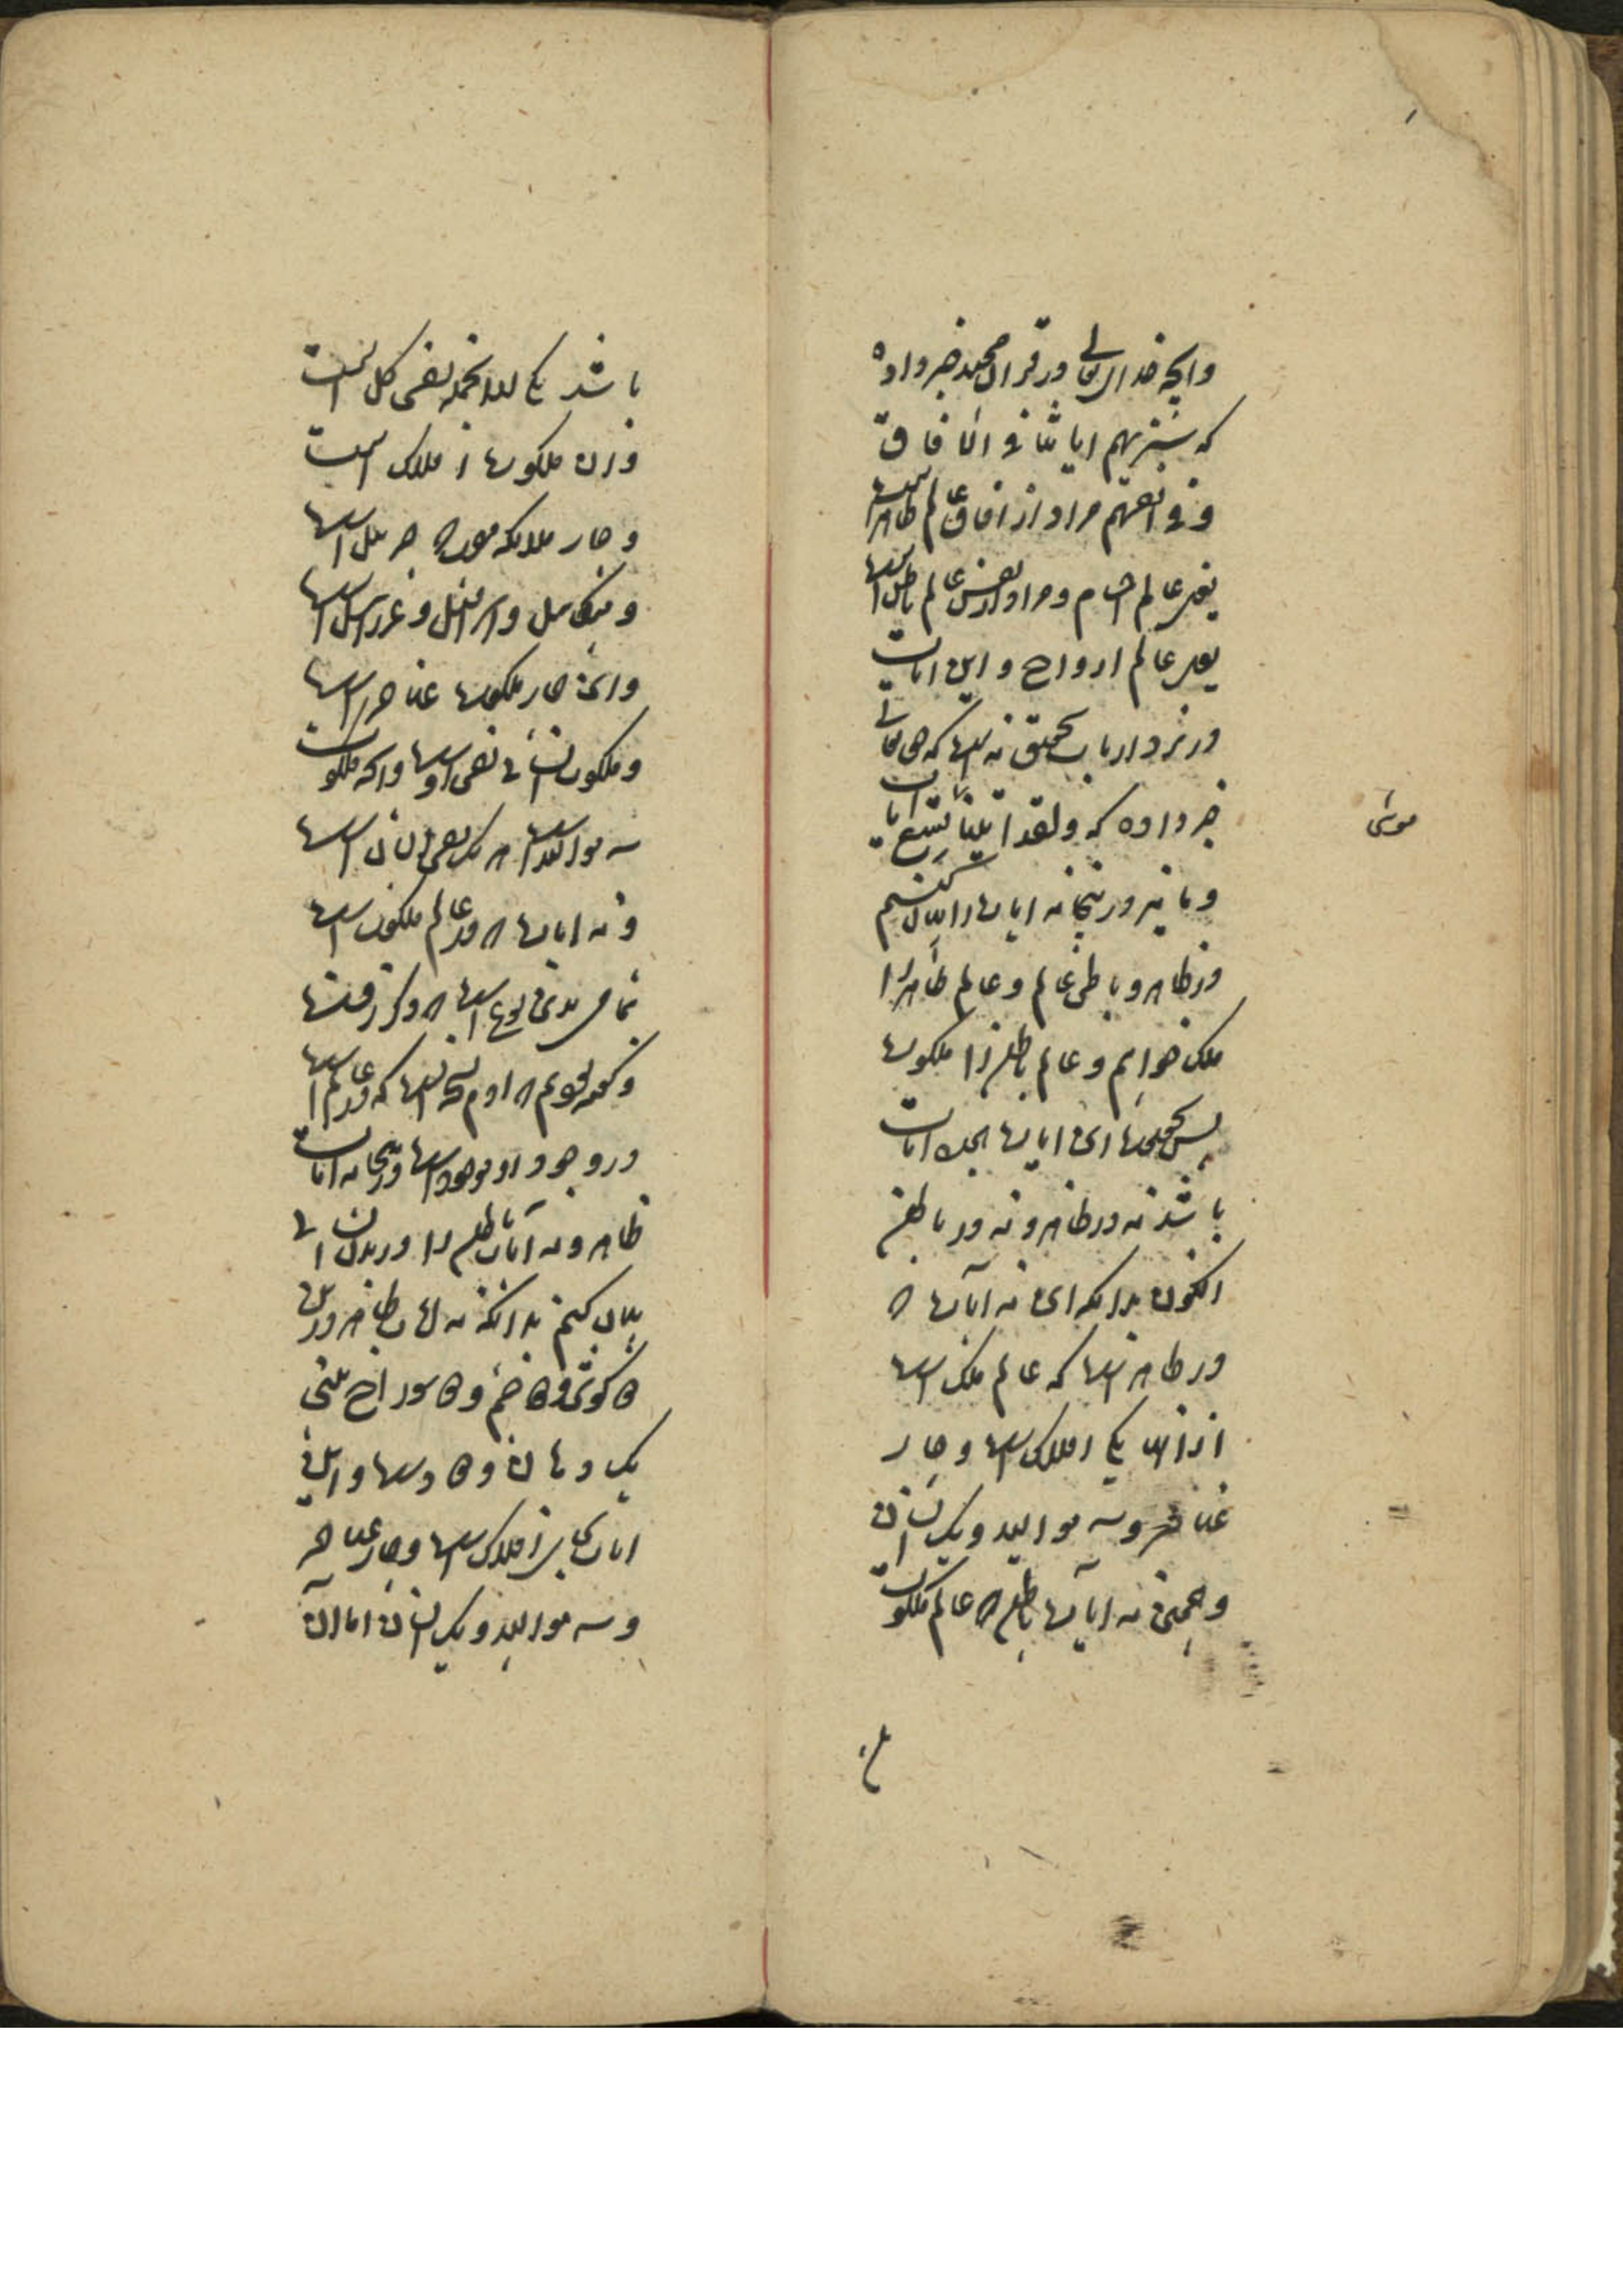 وانچه خدا تعالی در قران مجید خبر داده
که سنریهم ایاتنا فی الافاق
و فی انفسهم مراد از افاق عالم ظاهر است
یعنی عالم اجسام و مراد از انفس عالم باطن است
یعنی عالم ارواح و این ایات
در نزد ارباب تحقیق نه است که حق تعالی
خبر داده که ولقد اتینا تسع ایات
موسی
و ما نیز در اینجا نه ایات را بیان کنیم
در ظاهر و باطن عالم و عالم ظاهر را
ملک خوانیم و عالم باطن را ملکوت
پس بحقیقت این ایات هجده ایات
باشد نه در ظاهر و نه در باطن
اکنون بدانکه این نه آیات که
در ظاهر است که عالم ملک است
از آن یکی افلاک است و چار
عناصر و سه موالید و یک انسان
و همچنین نه ایات باطن که عالم ملکوت
باشد یکی نفس کل است
و آن ملکوت افلاک است
و چار ملائکه چون جبرئیل است
و میکائیل و اسرافیل و عزرائیل است
و این چار ملکوت عناصر است
و ملکوت انسانی نفس او است و انکه ملکوت
سه موالید است هم یک نفس انسان است
و نه ایات که در عالم ملکوت است
تمام بدین نوع است که ذکر رفت
و گفته شد که ادم نسخه است که در عالم است
در وجود او موجود است در اینجا نه ایات
ظاهر و نه آیات باطن را در بدن انسانی
بیان کنیم بدانکه نه ایات ظاهر در بدن
دو گوش و دو چشم و دو سوراخ بینی
یک دهان و دو دست و این
ایات افلاک است و چار عناصر
و سه موالید و یک انسان اما آن